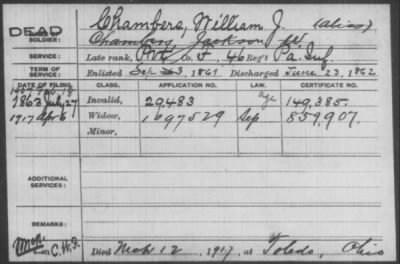 DEAD
SOLDIER:
Chambers, William J. (alias)
Chambers, Jackson W.
SERVICE:
Late rank, Pvt Co. F, 46 Reg't Pa. Inf
TERM OF SERVICE:
Enlisted Sep 3, 1861 Discharged June 23, 1862
DATE OF FILING. CLASS. APPLICATION NO. LAW. CERTIFICATE NO.
1863 July 27 Invalid, 29,483 age 149,385.
1917 Apr 6 Widow, 1097529 Sep 859,907.
Minor,
ADDITIONAL SERVICES:
REMARKS:
C.W.F.
Died Mch 12, 1917, at Toledo, Ohio